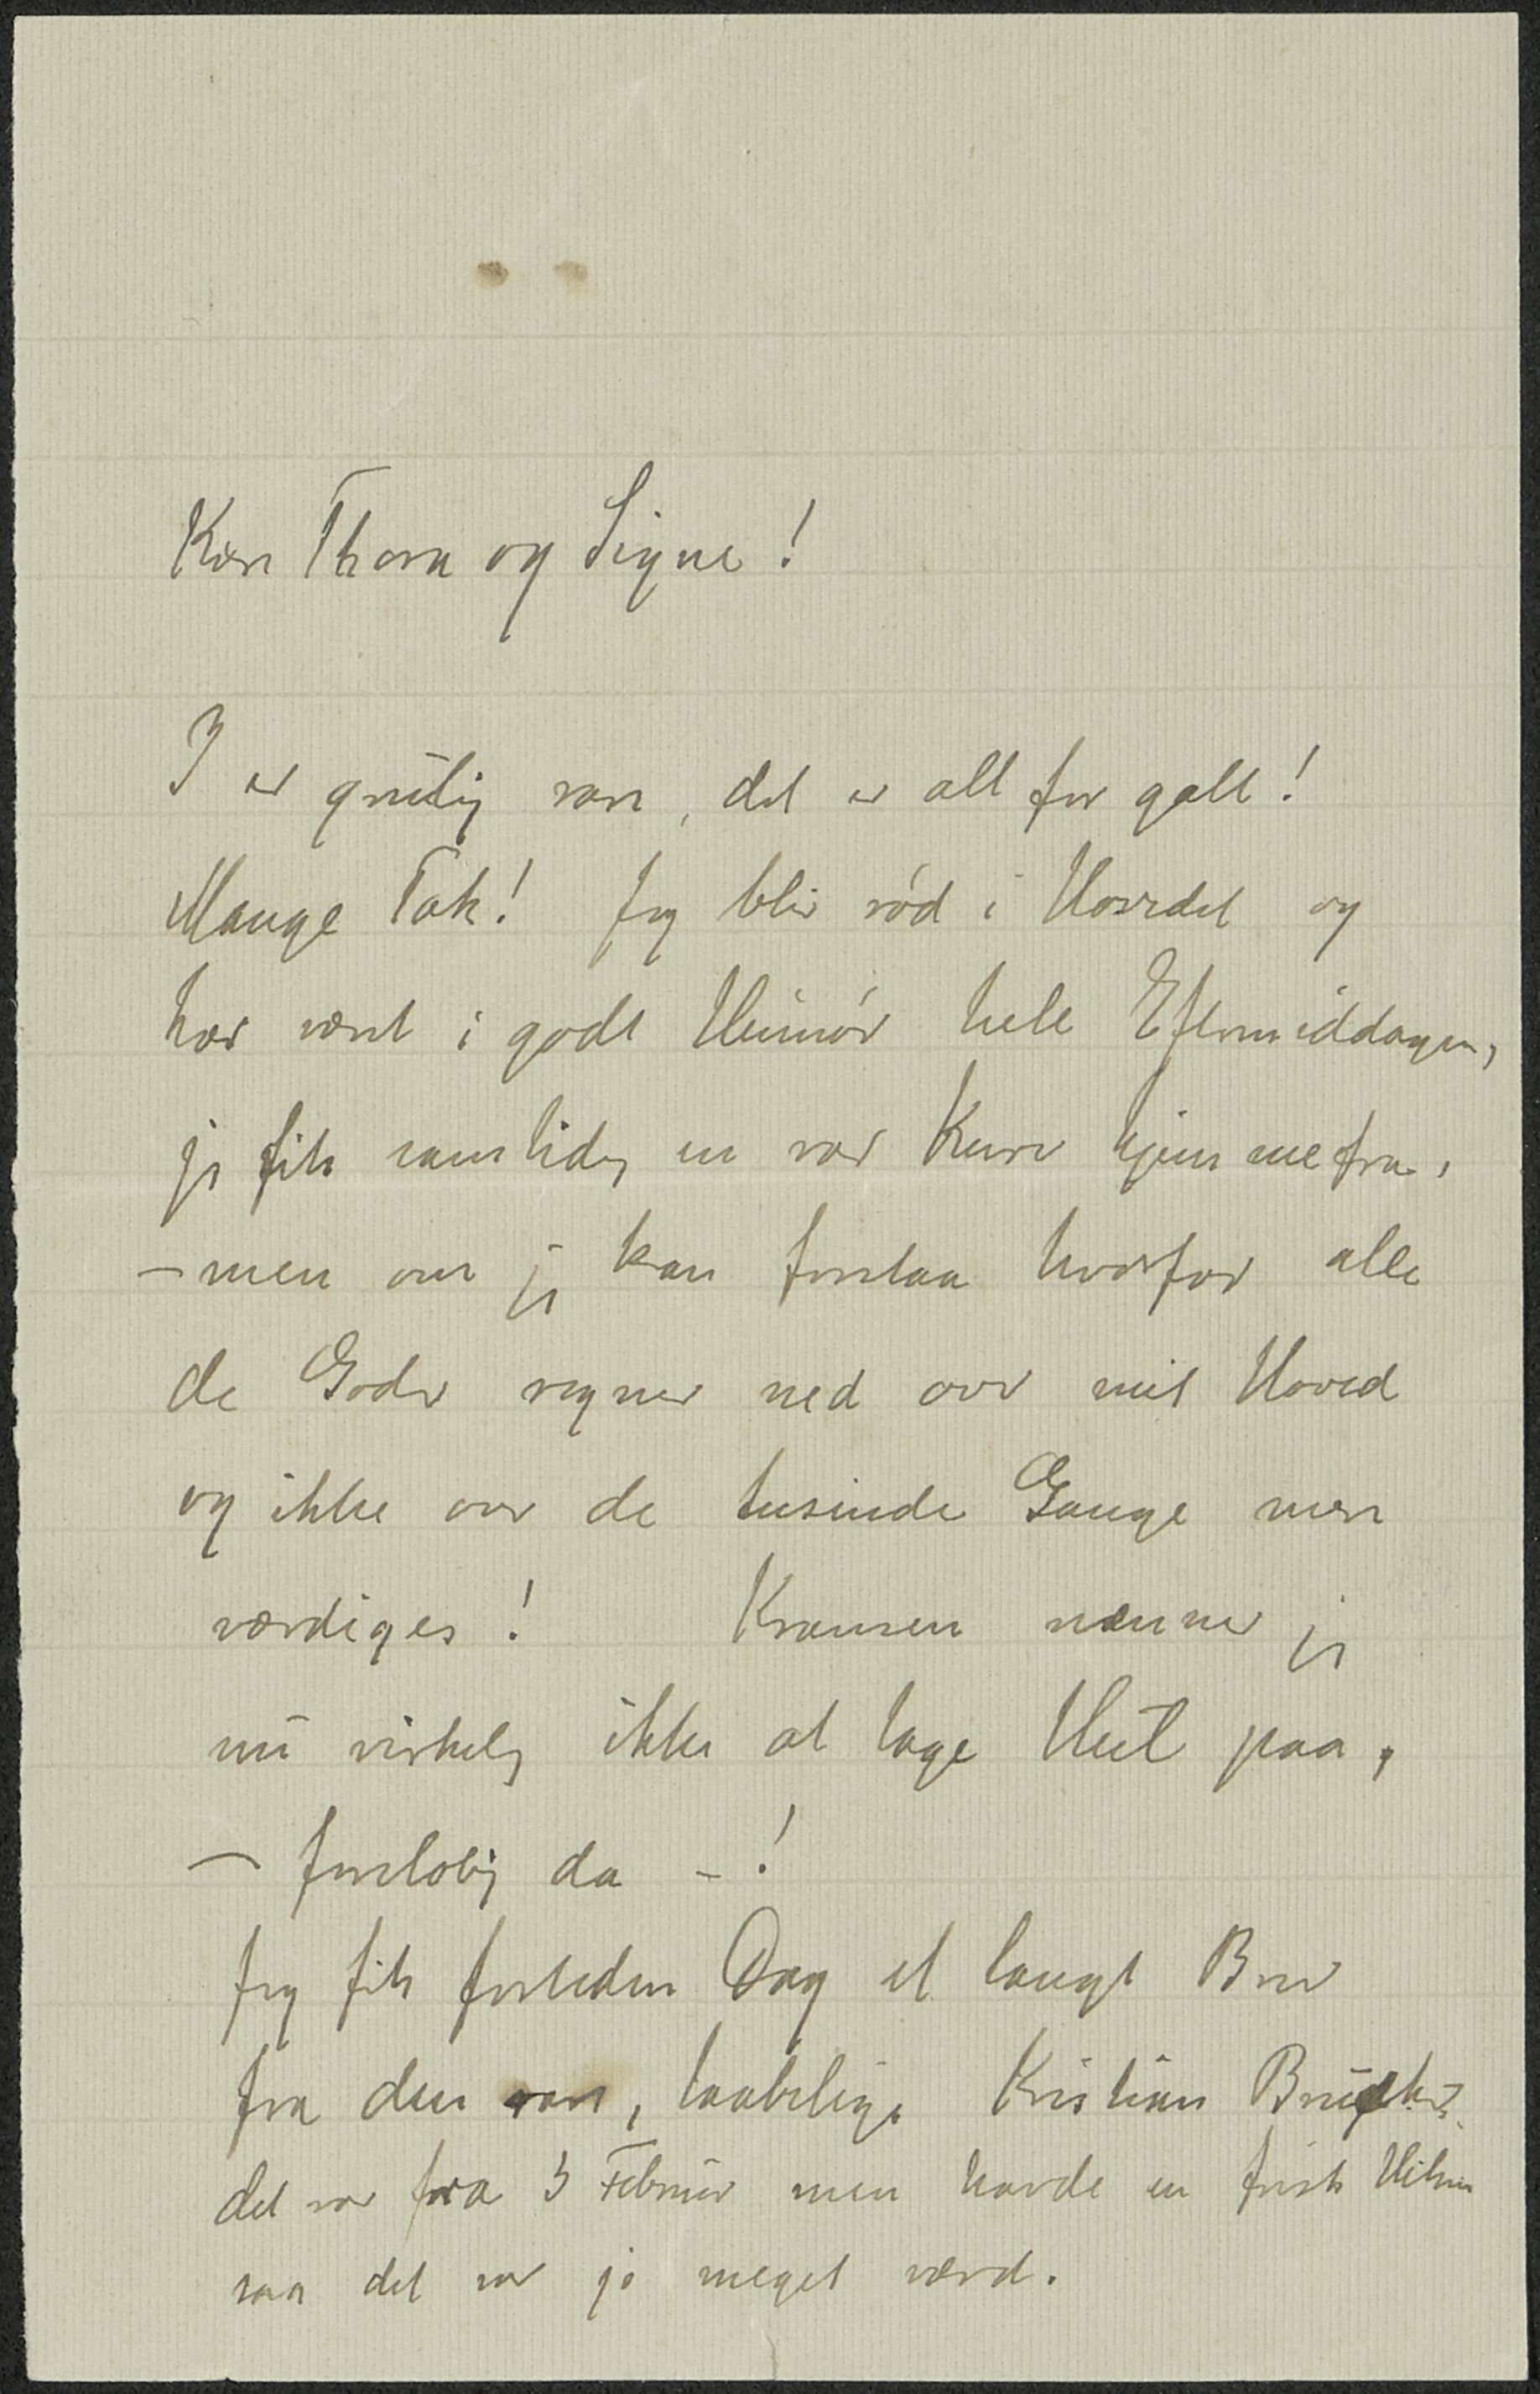 Kære Thora og Signe!
I er grulig rare, det er alt for galt!
Mange Tak! Jeg blir rød i Hovedet og
har været i godt Humør hele Eftermiddagen,
jeg fik samtidig en rar Kurv hjemmefra,
– men om jeg kan forstaa hvorfor alle
de Goder regner ned over mit Hoved
og ikke over de tusinde Gange mere
værdiges! Kransen nænner jeg
nu virkelig ikke at tage Hul paa,
– foreløbig da – !
Jeg fik forleden Dag et langt Brev
fra den rare, taabelige Kristian
det var fra 3 Februar men havde en frisk Hilsen
saa det var jo meget værd.